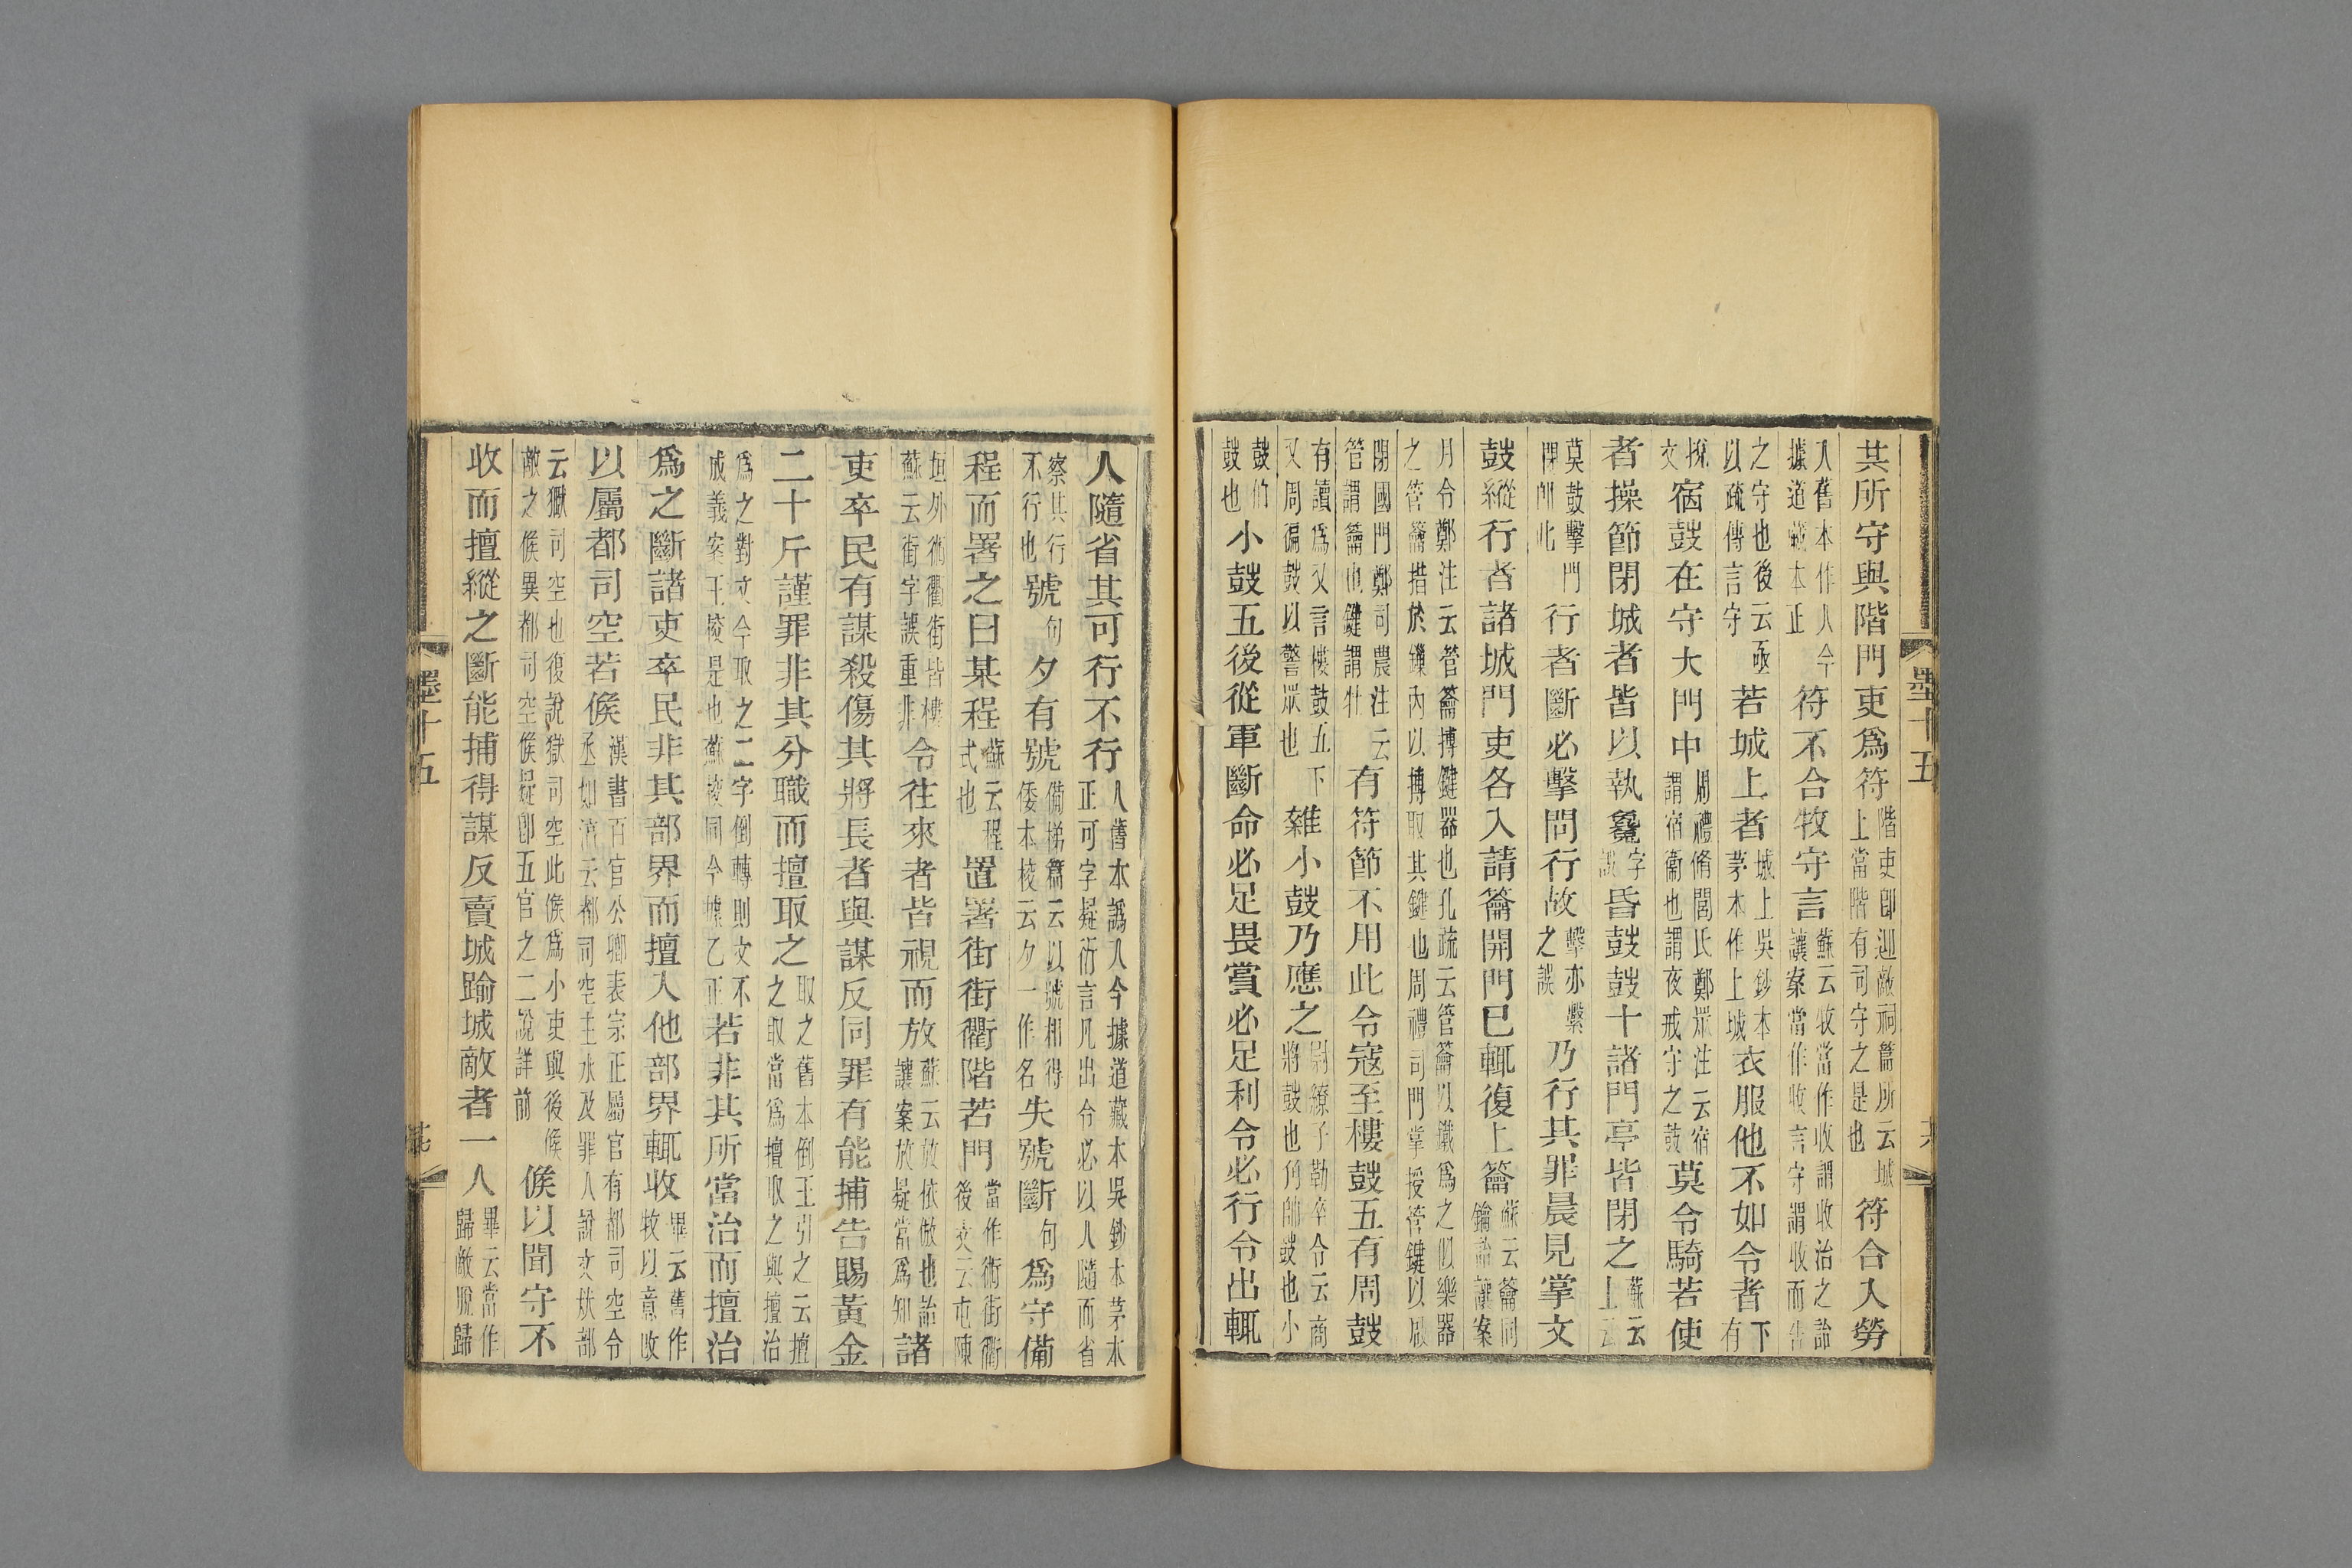 墨十五
其所守與階門吏爲符階吏卽迎敵祠篇所云城上當階有司守之是也符合入勞
入舊本作人今據道藏本正符不合牧守言蘇云牧當作收謂收治之詒讓案當作收言守謂收而告
之守也後云亟以疏傳言守若城上者城上吳鈔本茅本作上城衣服他不如令者下有
挩文宿鼓在守大門中周禮脩閭氏鄭眾注云宿謂宿衞也謂夜戒守之鼓莫令騎若使
者操節閉城者皆以執毚字誤昏鼓鼓十諸門亭皆閉之蘇云上云
莫鼓擊門閉門此行者斷必擊問行故擊亦繫之誤乃行其罪晨見掌文
鼓縱行者諸城門吏各入請籥開門已輒復上籥蘇云籥同鑰詒讓案
月令鄭注云管籥搏鍵器也孔疏云管籥以鐵爲之似樂器之管籥揩於鏁內以搏取其鍵也周禮司門掌授管鍵以啟
閉國門鄭司農注云管謂籥也鍵謂牡有符節不用此令寇至樓鼓五有周鼓
有讀爲又言樓鼓五下又周徧鼓以警眾也雜小鼓乃應之尉繚子勒卒令云商將鼓也角帥鼓也小
鼓伯鼓也小鼓五後從軍斷命必足畏賞必足利令必行令出輒
人隨省其可行不行人舊本譌入今據道藏本吳鈔本茅本正可字疑衍言凡出令必以人隨而省
察其行不行也號句夕有號備梯篇云以號相得倭本校云夕一作名失號斷句爲守備
程而署之曰某程蘇云程式也置署街街衢階若門當作術街衢後文云屯陳
垣外術衢街皆樓蘇云街字誤重非令往來者皆視而放蘇云放依倣也詒讓案放疑當爲知諸
吏卒民有謀殺傷其將長者與謀反同罪有能捕告賜黃金
二十斤謹罪非其分職而擅取之取之舊本倒王引之云擅之取當爲擅取之與擅治
爲之對文今取之二字倒轉則文不成義案王校是也蘇校同今據乙正若非其所當治而擅治
爲之斷諸吏卒民非其部界而擅入他部界輒收畢云舊作牧以意改
以屬都司空若候漢書百官公卿表宗正屬官有都司空令丞如淳云都司空主水及罪人說文㹜部
云獄司空也復說獄司空此候爲小吏與後候敵之候異都司空候疑卽五官之二說詳前候以聞守不
收而擅縱之斷能捕得謀反賣城踰城敵者一人畢云當作歸敵脫歸
墨十五